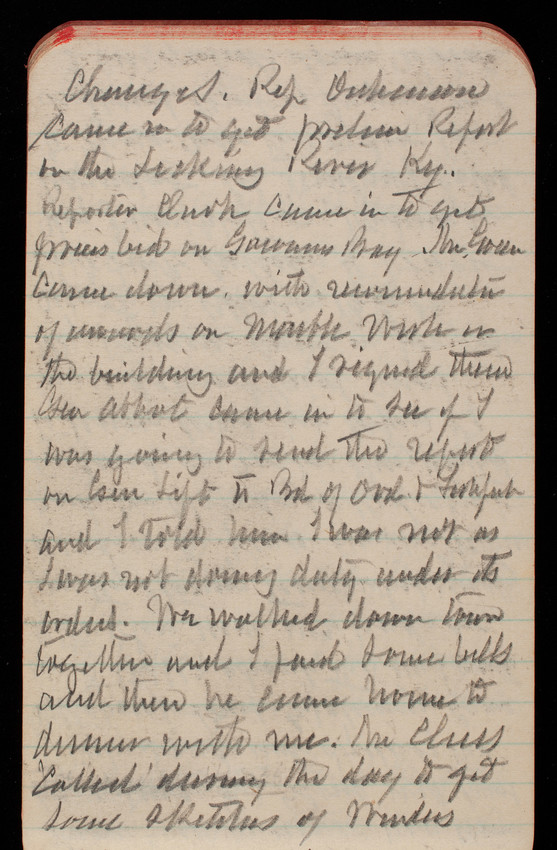 Changes. Rep Dickinson
came in to get prelim Report
on the Licking River Ky.
Reporter Clark came in to get
prices bid on Gowanus Bay Mr. Green
came down with recommendation
of awards on Marble Work in
the building and I signed them
Gen Abbot came in to see if I
was going to send the report
on Gun Lift to Bd of Ord &
and I told him I was not as
I was not doing duty under its
orders. We walked down town
together and I paid some bills
and then he came home to
dinner with me. Mr
called during the day to get
some sketches of